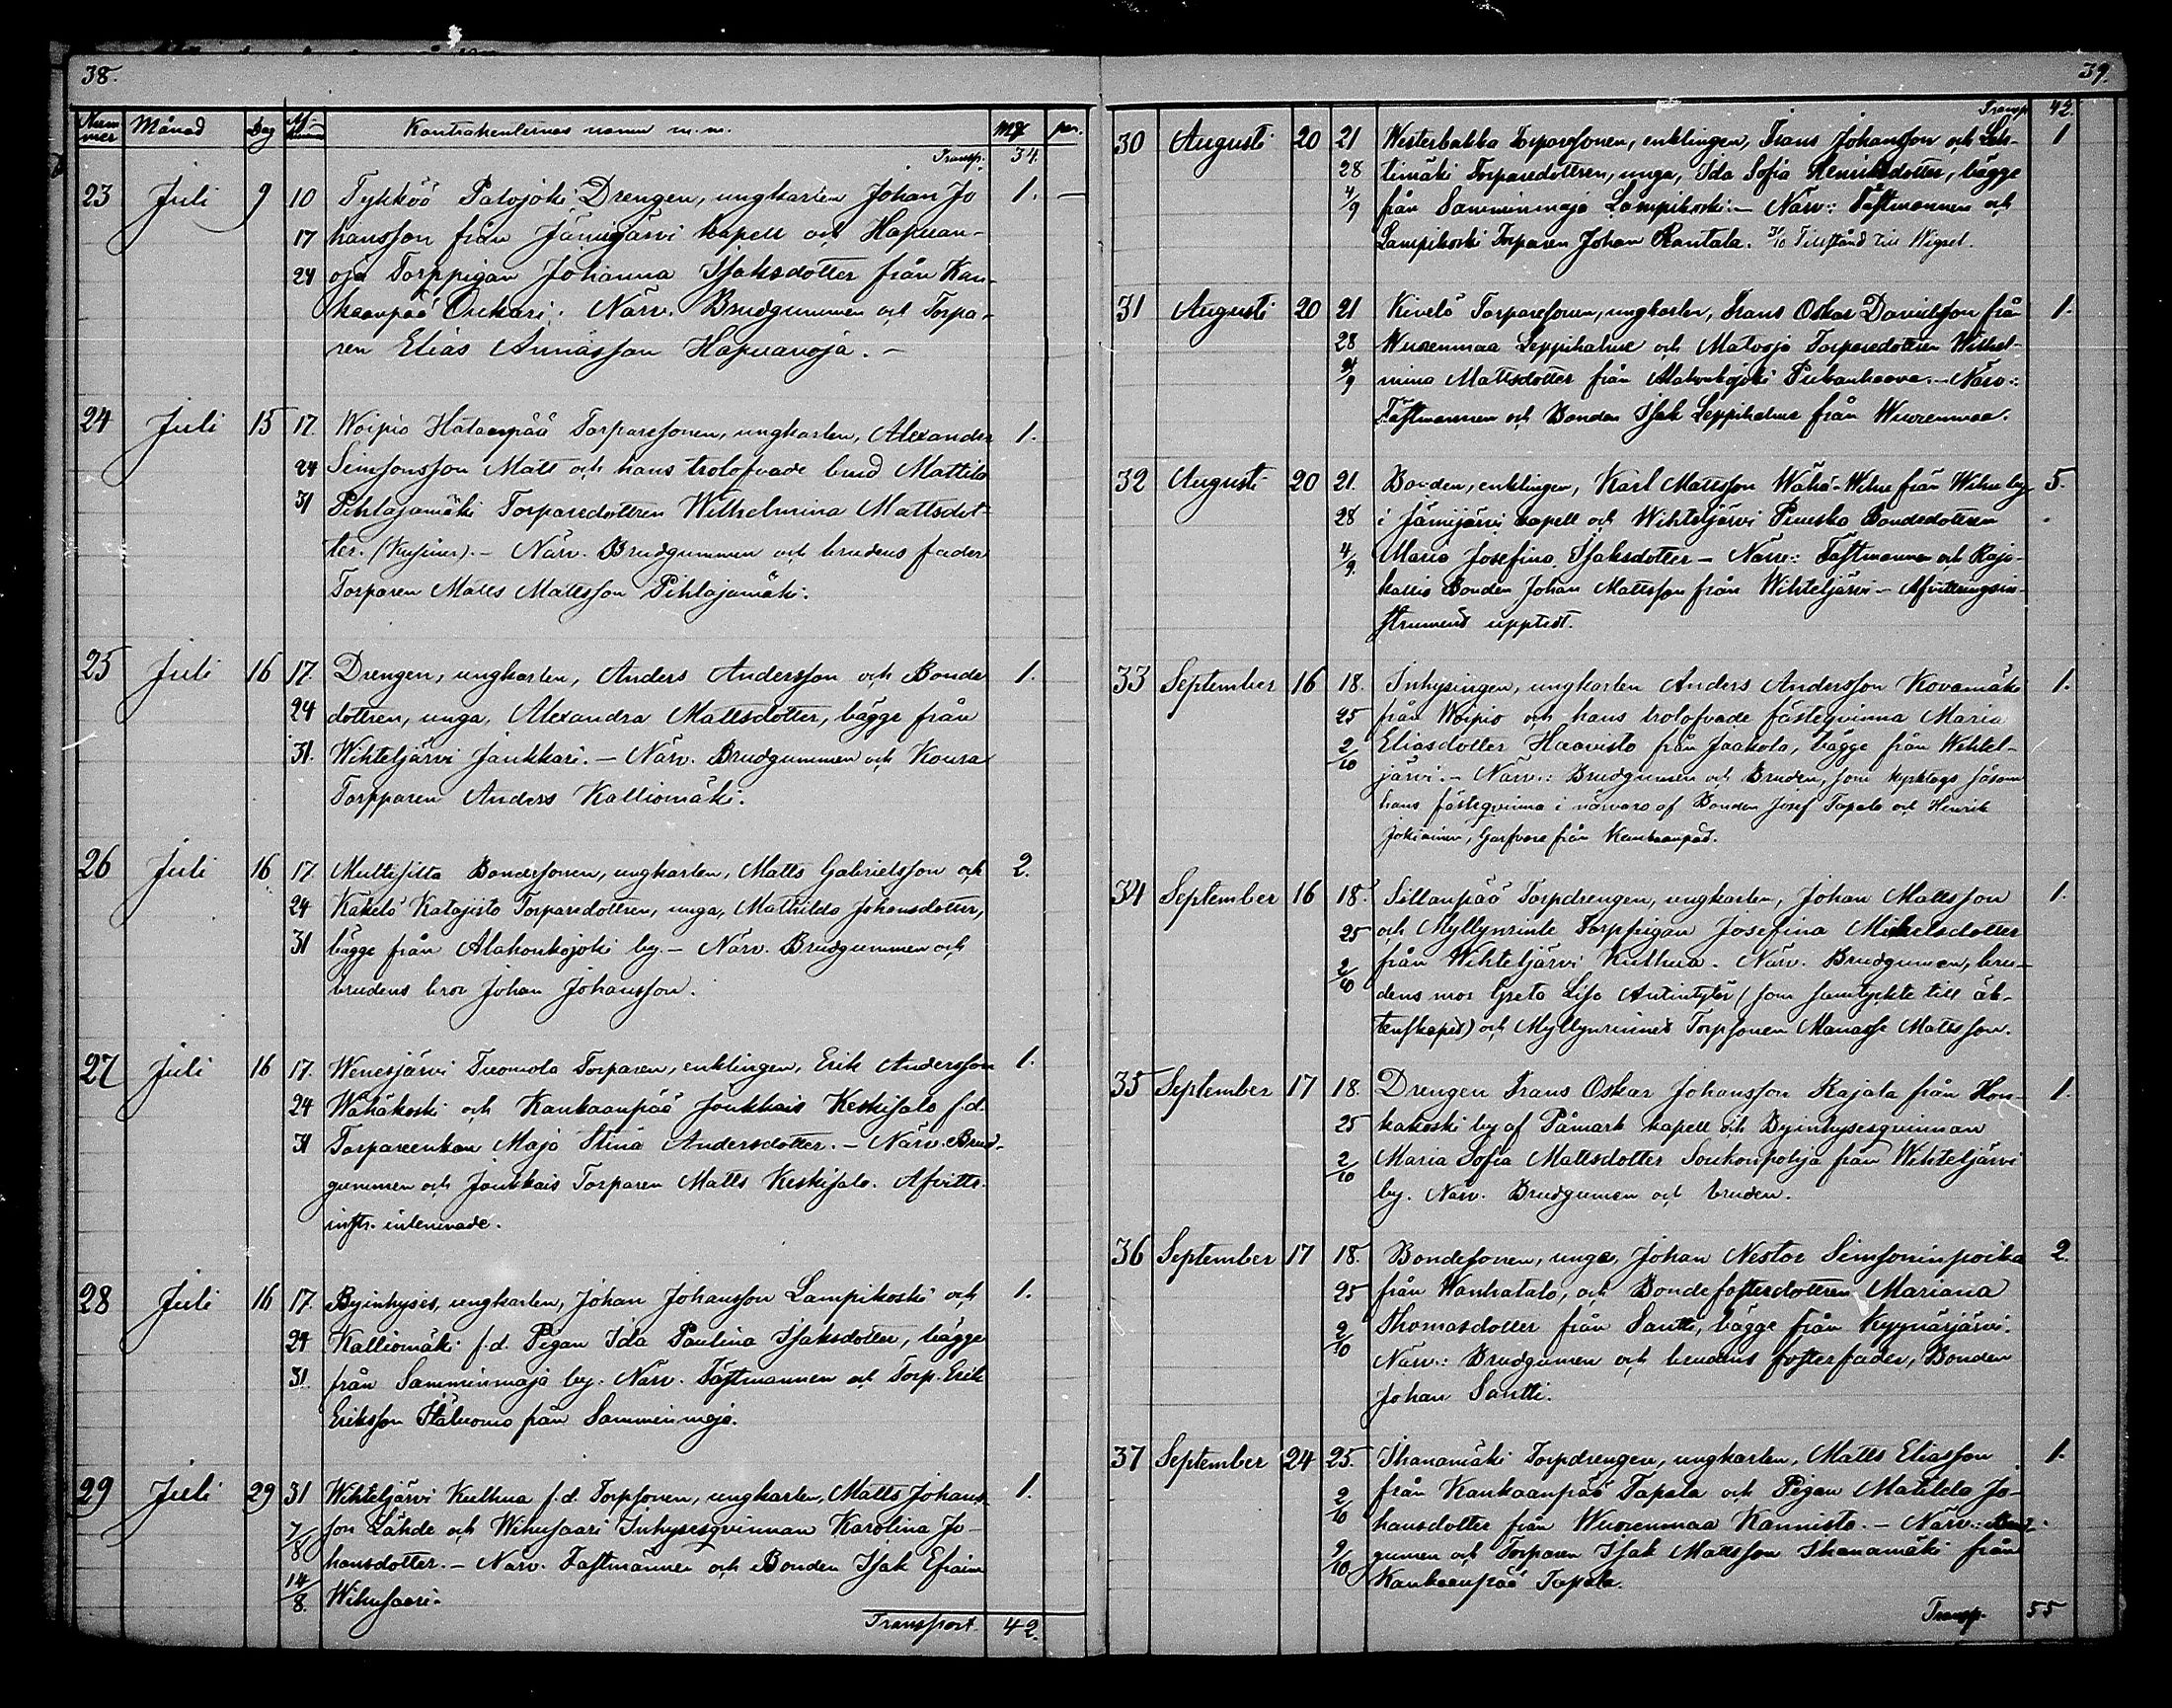 38.
Num-
mer
Månad
Dag
Kontrahenternas namn m. m.
mk
pen.
Transp. 34.
23 Juli 9 10 Tykköö Palojoki Drengen, ungkarlen Johan Jo 1. —
17 hansson från Jämijärvi kapell och Hapuan-
24 oja Torppigan Johanna Isaksdotter från Kan-
kaanpää . Närv. Brudgummen och Torpa-
ren Elias Hapuanoja. —
24 Juli 15 17. Woipio Torparesonen, ungkarlen, Alexander 1.
24 Simsonsson Matt och hans trolofvade brud Mattila
31 Pihlajamäki Torparedottren Wilhelmina Mattsdot-
ter. (Kusiner). — Närv. Brudgummen och brudens fader
Torparen Matts Mattsson Pihlajamäki.
25 Juli 16 17. Drengen, ungkarlen, Anders Andersson och Bonde 1.
24 dottren, unga, Alexandra Mattsdotter, bägge från
31. Wihteljärvi Jaukkari. — Närv. Brudgummen och Koura
Torpparen Anders Kalliomäki.
26 Juli 16 17. Multisilta Bondesonen, ungkarlen, Matts Gabrielsson och 2.
24 Katajisto Torparedottren, unga, Mathilda Johansdotter,
31 bägge från Alahonkojoki by. — Närv. Brudgummen och
brudens bror Johan Johansson.
27 Juli 16 17. Wenesjärvi Tuomola Torparen, enklingen, Erik Andersson 1.
24 Wähäkoski och Kankaanpää Keskisalo f.d.
31 Torpareenkan Maja Stina Andersdotter. — Närv. Brud-
gummen och Torparen Matts Keskisalo. Afvittr.
instr. inlemnade.
28 Juli 16 17. Byinhyses, ungkarlen, Johan Johansson Lampikoski och 1.
24 Kalliomäki f.d. Pigan Ida Paulina Isaksdotter, bägge
31. från Samminmaja by. Närv. Fästmannen och Torp. Erik
Eriksson från Samminmaja.
29 Juli 29 31 Wihteljärvi Kulhua f.d. Torpsonen, ungkarlen, Matts Johans- 1.
7/8 son Lähde och Wihusaari Inhysesqvinnan Karolina Jo-
hansdotter. — Närv. Fästmannen och Bonden Isak Efraim
14/8. Wihusaari.
Transport 42.
39.
Transp. 42.
30 Augusti 20 21 Westerbakka Torparesonen, enklingen, Frans Johansson och Leh- 1
28 timäki Torparedottren, unga, Ida Sofia Henriksdotter, bägge
4/9 från Samminmaja Lampikoski. — Närv.: Fästmannen och
Lampikoski Torparen Johan Rantala. 3/10 Tillstånd till Wigsel.
31 Augusti 20 21 Kivelä Torparesonen, ungkarlen, Frans Oskar Davidsson från 1.
28 Wuorenmaa Leppihalme och Matooja Torparedottren Wilhel-
4/9 mina Mattsdotter från Alahonkojoki . — Närv.:
Fästmannen och Bonden Isak Leppihalme från Wuorenmaa.
32 Augusti 20 21. Bonden, enklingen, Karl Mattsson Wähä-Wihu från Wihu by 5.
28 i Jämijärvi kapell och Wihteljärvi Bondedottren
4/9. Maria Josefina Isaksdotter — Närv.: Fästmannen och Raja-
kallio Bonden Johan Mattsson från Wihteljärvi — Afvittringsin-
strument upptedt.
33 September 16 18. Inhysingen, ungkarlen Anders Andersson Kovamäki 1.
25 från Woipio och hans trolofvade fästeqvinna Maria
2/10 Eliasdotter Haavisto från Jaakola, bägge från Wihtel-
järvi. — Närv.: Brudgumen och Bruden, som kyrktogs såsom
hans fästeqvinna i närvaro af Bonden Josef Tapala och Henrik
Garfvare från Kankaanpää.
34 September 16 18. Sillanpää Torpdrengen, ungkarlen, Johan Mattsson 1.
25 och Myllynrinte Torppigan Josefina Mikelsdotter
2/10 från Wihteljärvi Kulhua. Närv. Brudgumen, bru-
dens mor Greta Lisa Antintytär (som samtyckte till äk-
tenskapet) och Myllynrinnes Torpsonen Manasse Mattsson.
35 September 17 18. Drengen Frans Oskar Johansson Rajala från Hon- 1.
25 kakoski by af Påmark kapell och Byinhysesqvinnan
2/10 Maria Sofia Mattsdotter Souhonpohja från Wihteljärvi
by. Närv. Brudgumen och bruden.
36 September 17 18. Bondesonen, unge, Johan Nestor Simsoninpoika 2.
25 från Wanhatalo, och Bondefosterdottren Mariana
2/10 Thomasdotter från Santti, bägge från Kyynärjärvi.
Närv.: Brudgumen och brudens fosterfader, Bonden
Johan Santti.
37 September 24 25. Ihanamäki Torpdrengen, ungkarlen, Matts Eliasson 1.
2/10 från Kankaanpää Tapala och Pigan Matilda Jo-
hansdotter från Wuorenmaa Kannisto. — Närv.: Brud-
9/10 gumen och Torparen Isak Mattsson Ihanamäki från
Kankaanpää Tapala.
Transp. 55